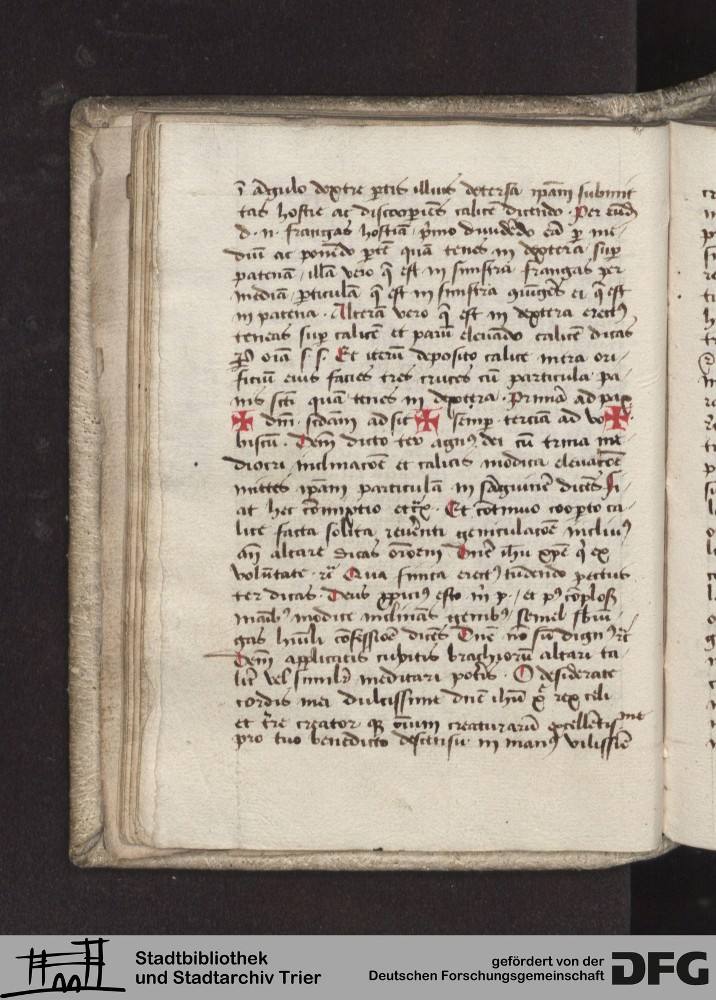 ī āgulo dextre ptis illius detersa ip̄am submit
tas hostie ac discoopiēs calicē dicendo · Per eūd
d · n · frangas hostiā · p̄mo diuidēdo eā p me-
diū ac ponēdo ptē quā tenes in dextera / sup
patenā / illā vero q̄ est in sinistra frangas per
mediā / pticulā q̄ est in sinistra ei q̄ est
in patena · Alterā vero q̄ est in dextera
teneas sup calicē et parū eleuādo calicē dicas
oīa s s · Et iterū deposito calice intra ori-
ficiū eius facies tres cruces cū particula pa-
nis sc̄ti quā tenes in dextera · Primā ad pax
✠ dn̄i · secdam ad sit ✠ semp · terciā ad vo ✠
biscū · Dem̄ dicto ter agnus dei cū trina me
diocri / inclinacōe et calicis modica eleuacōe
mittes ip̄am particulā in sāguinē dicēs fi
at hec cōmixtio · Et cōtinuo coopto ca-
lice facta solita reuerēti geniculacōe
an̄ altare dicas orōem · Dn̄e ihu xp̄e q̄ ex
volūtate · rc̄ Qua finita erectus tūdendo pectus
ter dicas · Deus ppicius esto m̄ p · et
manibus modice inclinās genibus / semel
gas hūili cōfessiōe dicēs Dn̄e nō sū dignus rc̄
Dem̄ applicatis cubitis brachiorū altari ta-
lit vel simili meditari potis · O desiderate
cordis mei dulcissime dn̄e ihū xp̄e rex celi
et tre creator oīum creaturarū excellētissime
pro tuo benedicto descensu in manus vilissīe
Stadtbibliothek
und Stadtarchiv Trier
gefördert von der
Deutschen Forschungsgemeinschaft
DFG